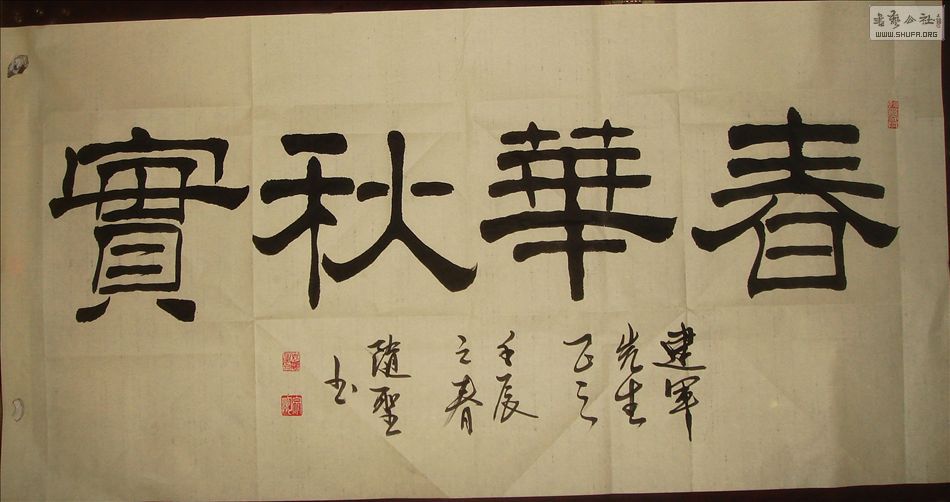 春華秋實
建軍
先生
正之
壬辰
之春
隨聖
书
书艺公社
WWW.SHUFA.ORG